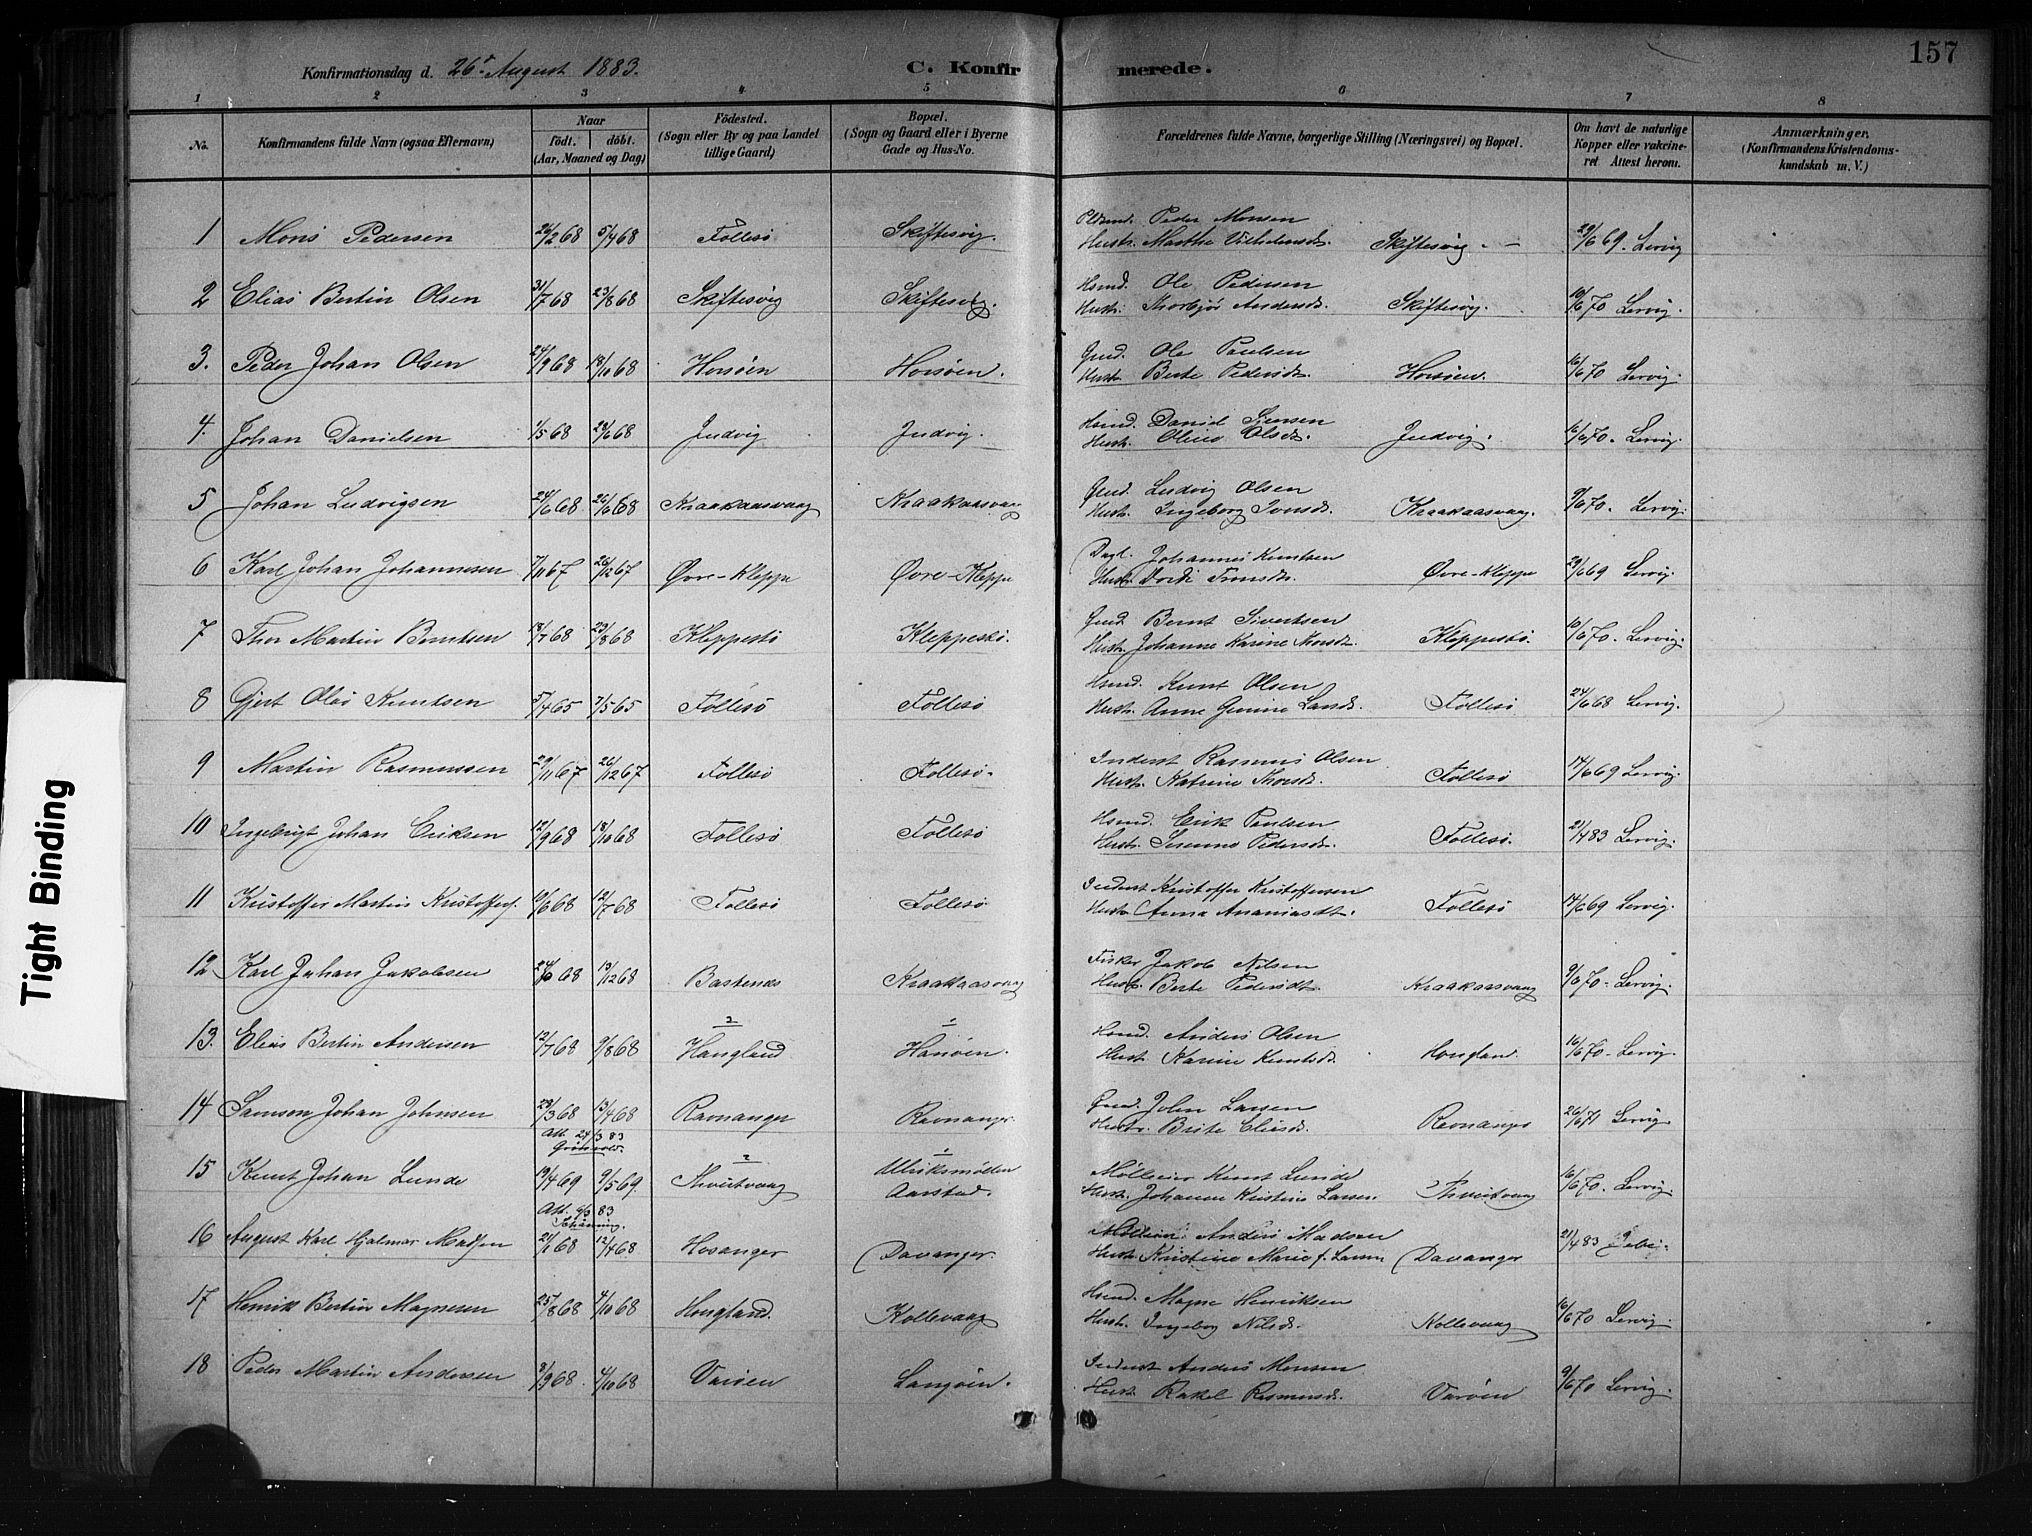 157
Konfirmationsdag d. 26de August 1883. C. Konfirmerede.
1 2 3 4 5 6 7 8
No. Konfirmandens fulde Navn (ogsaa Efternavn) Naar födt. döbt. (Aar, Maaned og Dag) Födested. (Sogn eller By og paa Landet tillige Gaard) Bopæl. (Sogn og Gaard eller i Byerne Gade og Hus-No. Forældrenes fulde Navne, borgerlige Stilling (Næringsvei) og Bopæl. Om havt de naturlige Kopper eller vakcineret Attest herom. Anmærkninger. (Konfirmandens Kristendomskundskab m. V.)
1 Mons Pedersen 26/2 68 5/4 68 Follesö Skiftesvig. Peder Monsen
Hustr. Marthe Vilhelmsd. Skiftesvig. 29/6 69. Lervig
2 Elias Bertin Olsen 31/7 68 23/8 68 Skiftesvig Skiftesvig. Hsmd. Ole Pedersen
Hustr. Thorbjör Andersd. Skiftesvig. 16/6 70 Lervig.
3. Peder Johan Olsen 24/9 68 18/10 68 Horsöen Horsöen. Grd. Ole Paulsen
Hustr. Berte Pedersdt. Horsöen. 16/6 70 Lervig.
4. Johan Danielsen 1/5 68 28/6 68 Judvig Judvig. Hsmd. Daniel Jensen
Hustr. Oline Olsd. Judvig. 16/6 70. Lervig.
5 Johan Ludvigsen 24/6 68 26/6 68 Kraakaasvaag Kraakaasvaag Grd. Ludvig Olsen
Hustr. Ingeborg Jonsd. Kraakaasvaag. 9/6 70. Lervig.
6 Karl Johan Johannesen 7/11 67 26/12 67 Øvre-Kleppe Øvre-Kleppe Dagl. Johannes Knutsen
Hustr. Øvre-Kleppe 29/6 69 Lervig.
7 Thor Martin Berntsen 18/7 68 23/8 68 Kleppestö Kleppestö. Grd Bernt Sivertsen
Hustr. Johanne Karine Thorsdt. Kleppestö. 16/6 70. Lervig.
8 Gjert Olai Knutsen 5/4 65 7/5 65 Follesö Follesö Hsmd. Knut Olsen
Hustr. Anne Follesö 24/6 68 Lervig.
9 Martin Rasmussen 29/11 67 26/12 67 Follesö Follesö. Inderst Rasmus Olsen
Hustr. Katrine Thorsdt. Follesö 14/6 69 Lervig.
10 Ingebrigt Johan Eriksen 12/9 68 18/10 68 Follesö Follesö Hsmd. Erik Paulsen
Hustr. Serenne Pedersdt. Follesö. 21/4 83 Lervig.
11 Kristoffer Martin Kristoffers. 10/6 68 12/7 68 Follesö Follesö Inderst Kristoffer Kristoffersen
Hustr. Anna Ananiasdt. Follesö 14/6 69 Lervig.
12. Karl Johan Jakobsen 13/12 68 Bastenes Kraakaasvaag Fisker Jakob Nilsen
Hustr. Berte Pedersdt. Kraakaasvaag 9/6 70. Lervig.
13. Elias Bertin Andersen 12/7 68 9/8 68 Haugland Hanöen. Hsmd. Anders Olsen
Hustr. Karine Knutsdt. Hougland. 16/6 70. Lervig.
14 Samson Johan Johnsen 23/3 68 13/4 68 Ravnanger Ravnanger. Grd. John Larsen
Hustr. Brite Eliasd. Ravnanger 26/6 71 Lervig.
Att. 24/3 83
15 Knut Johan Lunde 19/4 69 9/5 69. Thveitvaag Ulriksmölen Aarstad. Mölleier Knut Lunde
Hustr. Johanne Kristine Larsen. Thveitvaag 16/6 70. Lervig.
Att. 6/3 83
16 August Karl Hjalmar Madsen 21/1 68 12/4 68 Hosanger Davanger. Anders Madsen
Hustr. Kristine Marie f. Larsen Davanger 21/4 83
17 Henrik Bertin Magnesen 25/8 68 4/10 68 Hougland. Kollevaag Hsmd. Magne Henriksen
Hustr. Ingeborg Nilsd. Kollevaag 16/6 70 Lervig.
18 Peder Martin Andersen 3/9 68. 4/10 68 Varöen Langöen. Inderst Anders Monsen
Hustr. Rakel Rasmusd. Varöen 9/6 70 Lervig.
Tight Binding